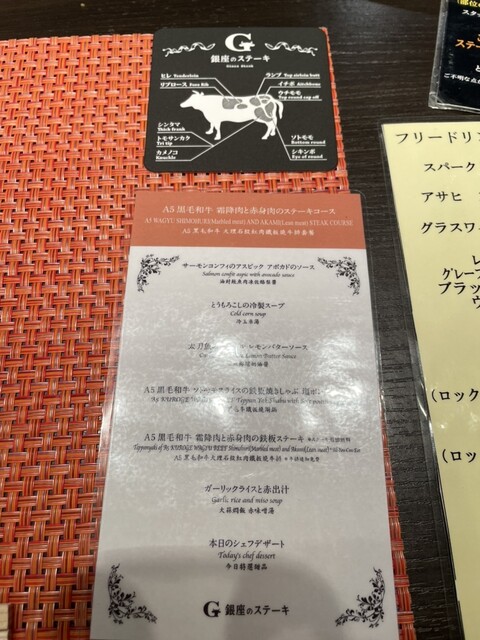 G
銀座のステーキ
Ginza Steak
ヒレ Tenderloin
リブロース Fore Rib
ランプ Top sirloin butt
イチボ Aitchbone
ウチモモ
Top round cap off
シンタマ
Thick flank
トモサンカク
Tri tip
カメノコ
Knuckle
ソトモモ
Bottom round
シキンボ
Eye of round
A5 黒毛和牛 霜降肉と赤身肉のステーキコース
A5 WAGYU SHIMOFURI(Marbled meat) AND AKAMI(Lean meat) STEAK COURSE
A5 黒毛和牛 大理石紋紅肉鐵板燒牛排套餐
サーモンコンフィのアスピック アボカドのソース
Salmon confit aspic with avocado sauce
油封鮭魚肉凍
とうもろこしの冷製スープ
Cold corn soup
冷玉米湯
太刀魚 レモンバターソース
Lemon Butter Sauce
A5 黒毛和牛 スライスの鉄板焼きしゃぶ
A5 KUROGE
A5 黒毛和牛 霜降肉と赤身肉の鉄板ステーキ
Teppanyaki of A5 KUROGE WAGYU BEEF Shimofuri(Marbled meat) and Akami(Lean meat)
A5 黒毛和牛 大理石紋紅肉鐵板燒牛排
ガーリックライスと赤出汁
Garlic rice and miso soup
大蒜燜飯 赤味噌湯
本日のシェフデザート
Today's chef dessert
今日特選甜品
G 銀座のステーキ
スタッ
ステー
ご不明な点
フリードリ
スパーク
アサヒ
グラスワ
グレー
ブラッ
(ロック
(ロッ